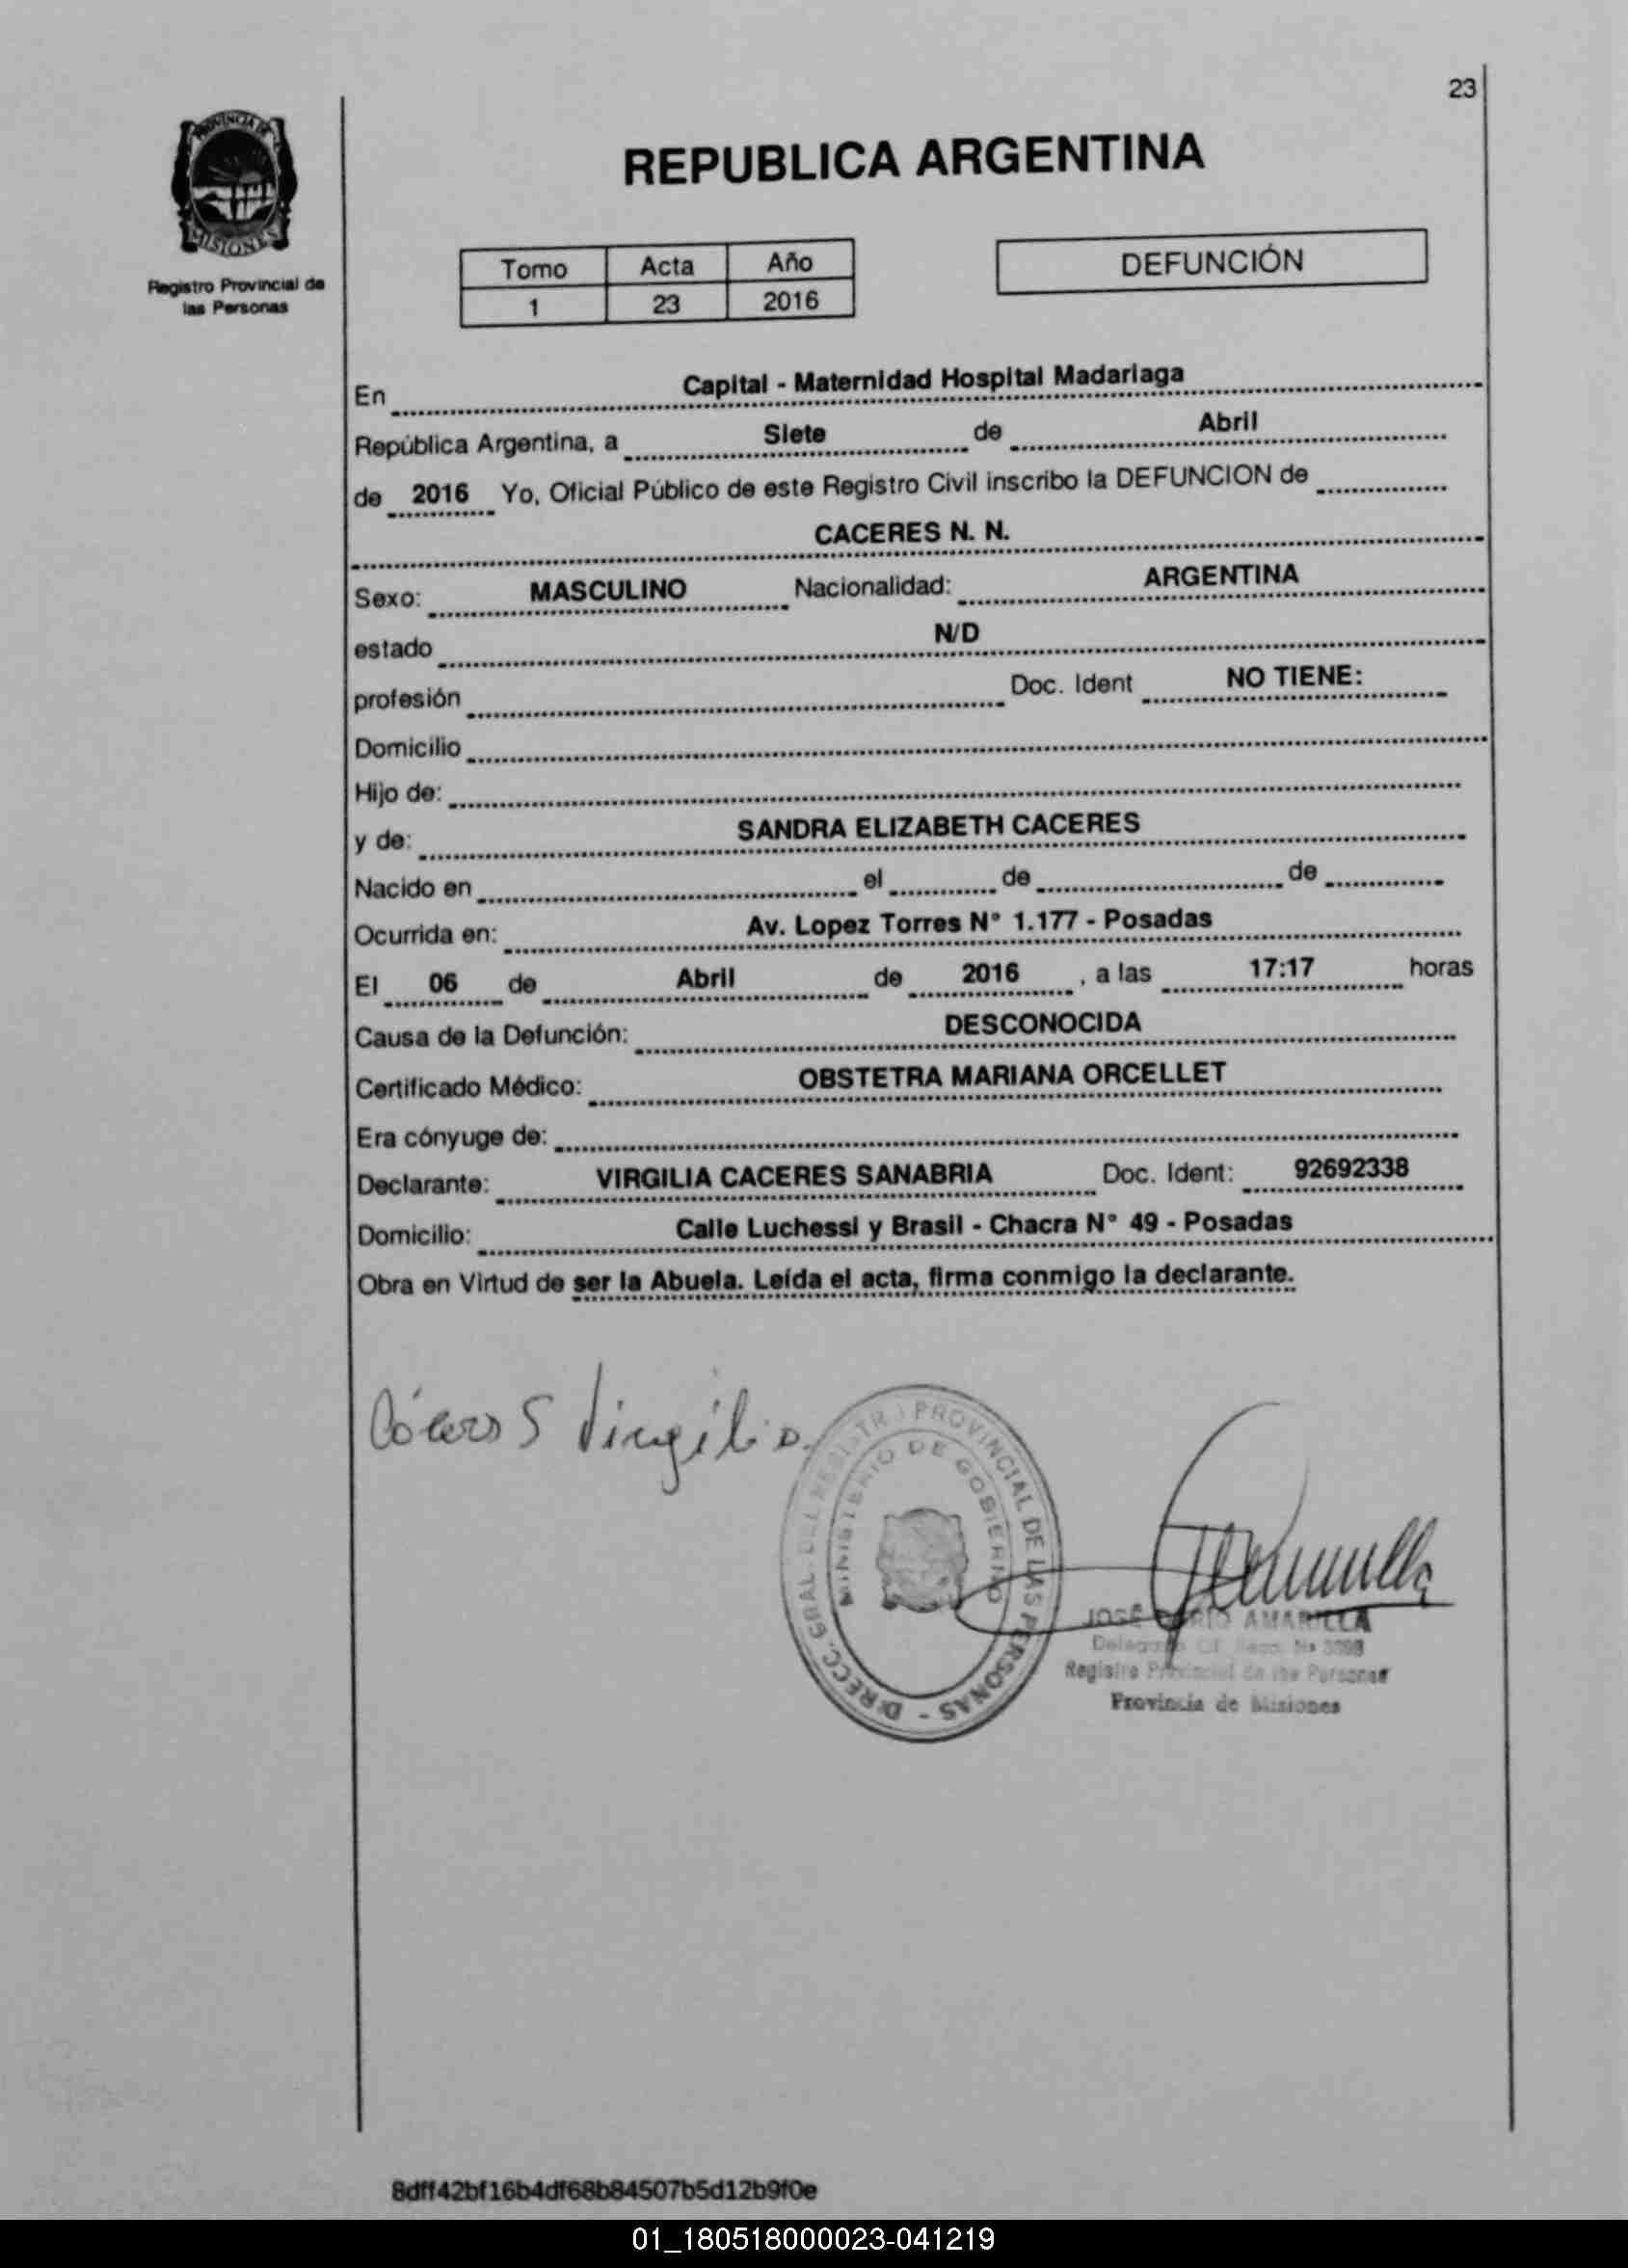 23
PROVINCIA DE
MISIONES
Registro Provincial de
las Personas
REPUBLICA ARGENTINA
Tomo Acta Año
1 23 2016
DEFUNCIÓN
En Capital - Maternidad Hospital Madariaga
República Argentina, a Siete de Abril
de 2016 Yo, Oficial Público de este Registro Civil inscribo la DEFUNCION de
CACERES N. N.
Sexo: MASCULINO Nacionalidad: ARGENTINA
estado N/D
profesión Doc. Ident NO TIENE:
Domicilio
Hijo de:
y de: SANDRA ELIZABETH CACERES
Nacido en el de de
Ocurrida en: Av. Lopez Torres N° 1.177 - Posadas
El 06 de Abril de 2016 , a las 17:17 horas
Causa de la Defunción: DESCONOCIDA
Certificado Médico: OBSTETRA MARIANA ORCELLET
Era cónyuge de:
Declarante: VIRGILIA CACERES SANABRIA Doc. Ident: 92692338
Domicilio: Calle Luchessi y Brasil - Chacra N° 49 - Posadas
Obra en Virtud de ser la Abuela. Leída el acta, firma conmigo la declarante.
DIRECC. GRAL. DEL REGISTR. PROVINCIAL DE LAS PERSONAS -
MINISTERIO DE GOBIERNO
JOSÉ AMARILLA
Registro Provincial de las Personas
Provincia de Misiones
8dff42bf16b4df68b84507b5d12b9f0e
01_180518000023-041219